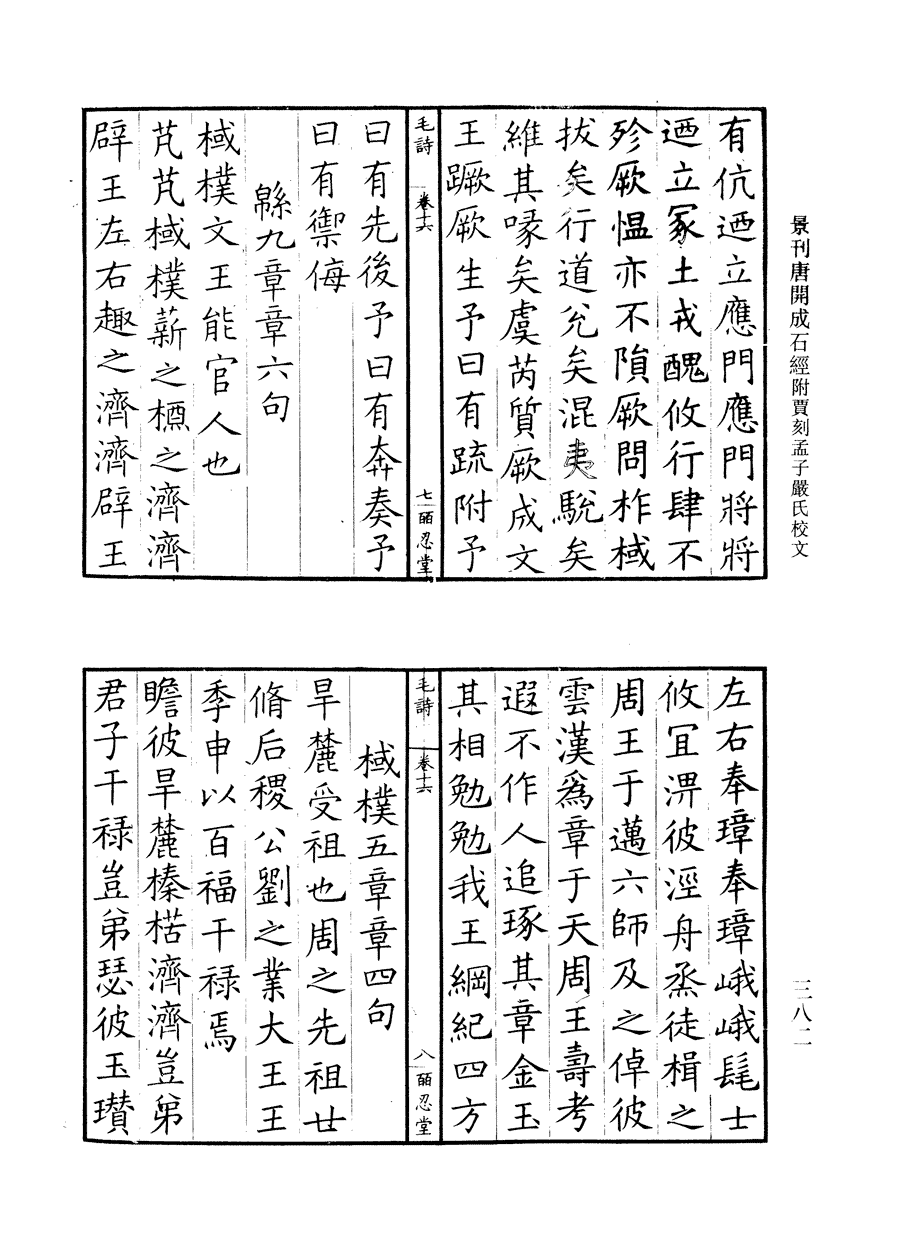 景刊唐開成石經附賈刻孟子嚴氏校文
有伉迺立應門應門將將
迺立冢土戎醜攸行肆不
殄厥慍亦不隕厥問柞棫
拔矣行道兊矣混夷駾矣
維其喙矣虞芮質厥成文
王蹶厥生予曰有疏附予
毛詩 卷十六 七 皕忍堂
曰有先後予曰有奔奏予
曰有禦侮
緜九章章六句
棫樸文王能官人也
芃芃棫樸薪之槱之濟濟
辟王左右趣之濟濟辟王
三八二
左右奉璋奉璋峨峨髦士
攸宜淠彼涇舟烝徒楫之
周王于邁六師及之倬彼
雲漢爲章于天周王壽考
遐不作人追琢其章金玉
其相勉勉我王綱紀四方
毛詩 卷十六 八 皕忍堂
棫樸五章章四句
旱麓受祖也周之先祖廿
脩后稷公劉之業大王王
季申以百福干祿焉
瞻彼旱麓榛楛濟濟豈弟
君子干祿豈弟瑟彼玉瓚